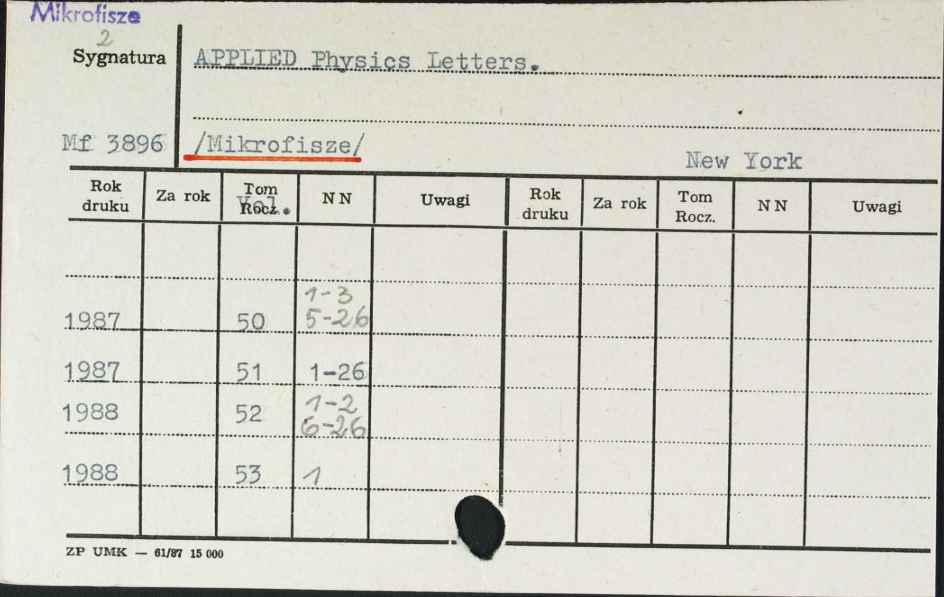 Mikrofisze
2
Sygnatura APPLIED Physics Letters.
Mf 3896 /Mikrofisze/
New York
Rok druku Za rok Tom Rocz. Vol. NN Uwagi Rok druku Za rok Tom Rocz. NN Uwagi
1-3
1987 50 5-26
1987 51 1-26
1-2
1988 52 6-26
1988 53 1
ZP UMK — 61/87 15 000